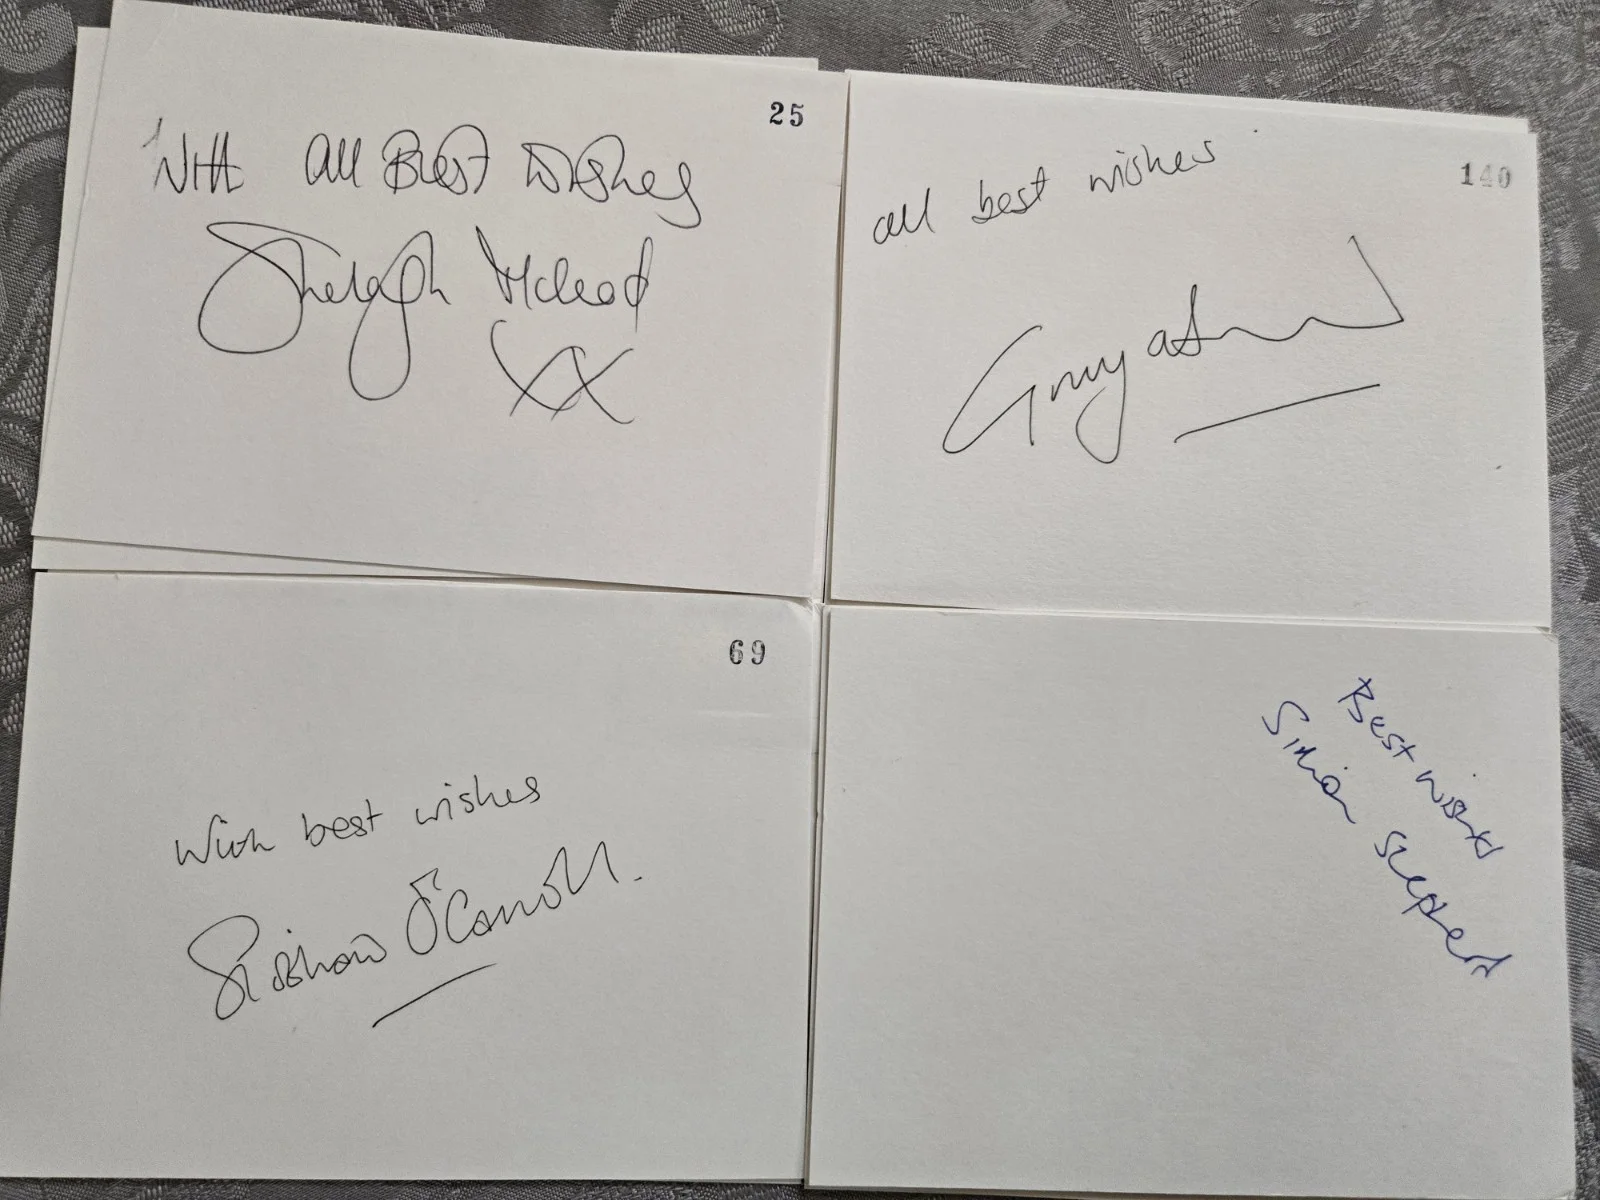 25
With All Best Wishes
Shelagh McLeod
XX
140
all best wishes
69
With best wishes
Siobhan O'Carroll.
Best wishes
Simon Shepherd